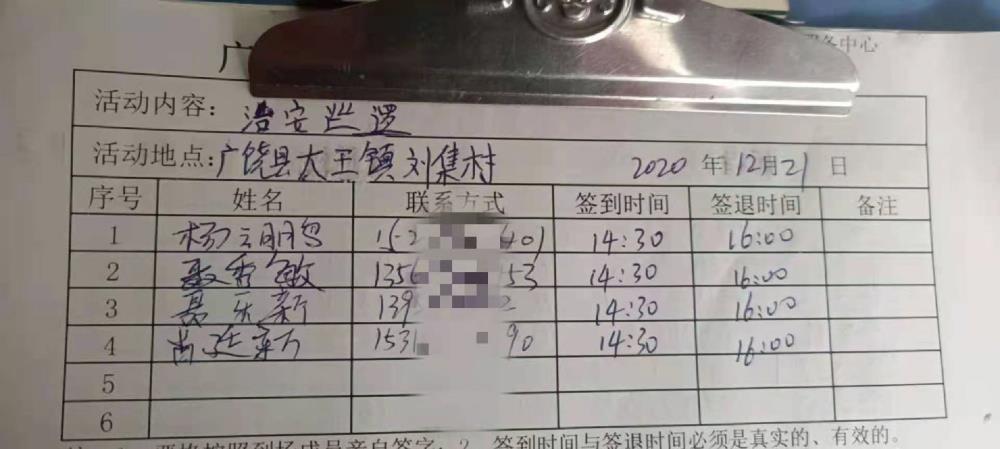 广
服务中心
活动内容: 治安巡逻
活动地点: 广饶县大王镇刘集村 2020 年 12月21 日
序号 姓名 联系方式 签到时间 签退时间 备注
1 杨 152 401 14:30 16:00
2 敏 1356 153 14:30 16:00
3 新 139 2 14:30 16:00
4 尚廷新 1531 90 14:30 16:00
5
6
严格按照到场成员亲自签字; 2、签到时间与签退时间必须是真实的、有效的。